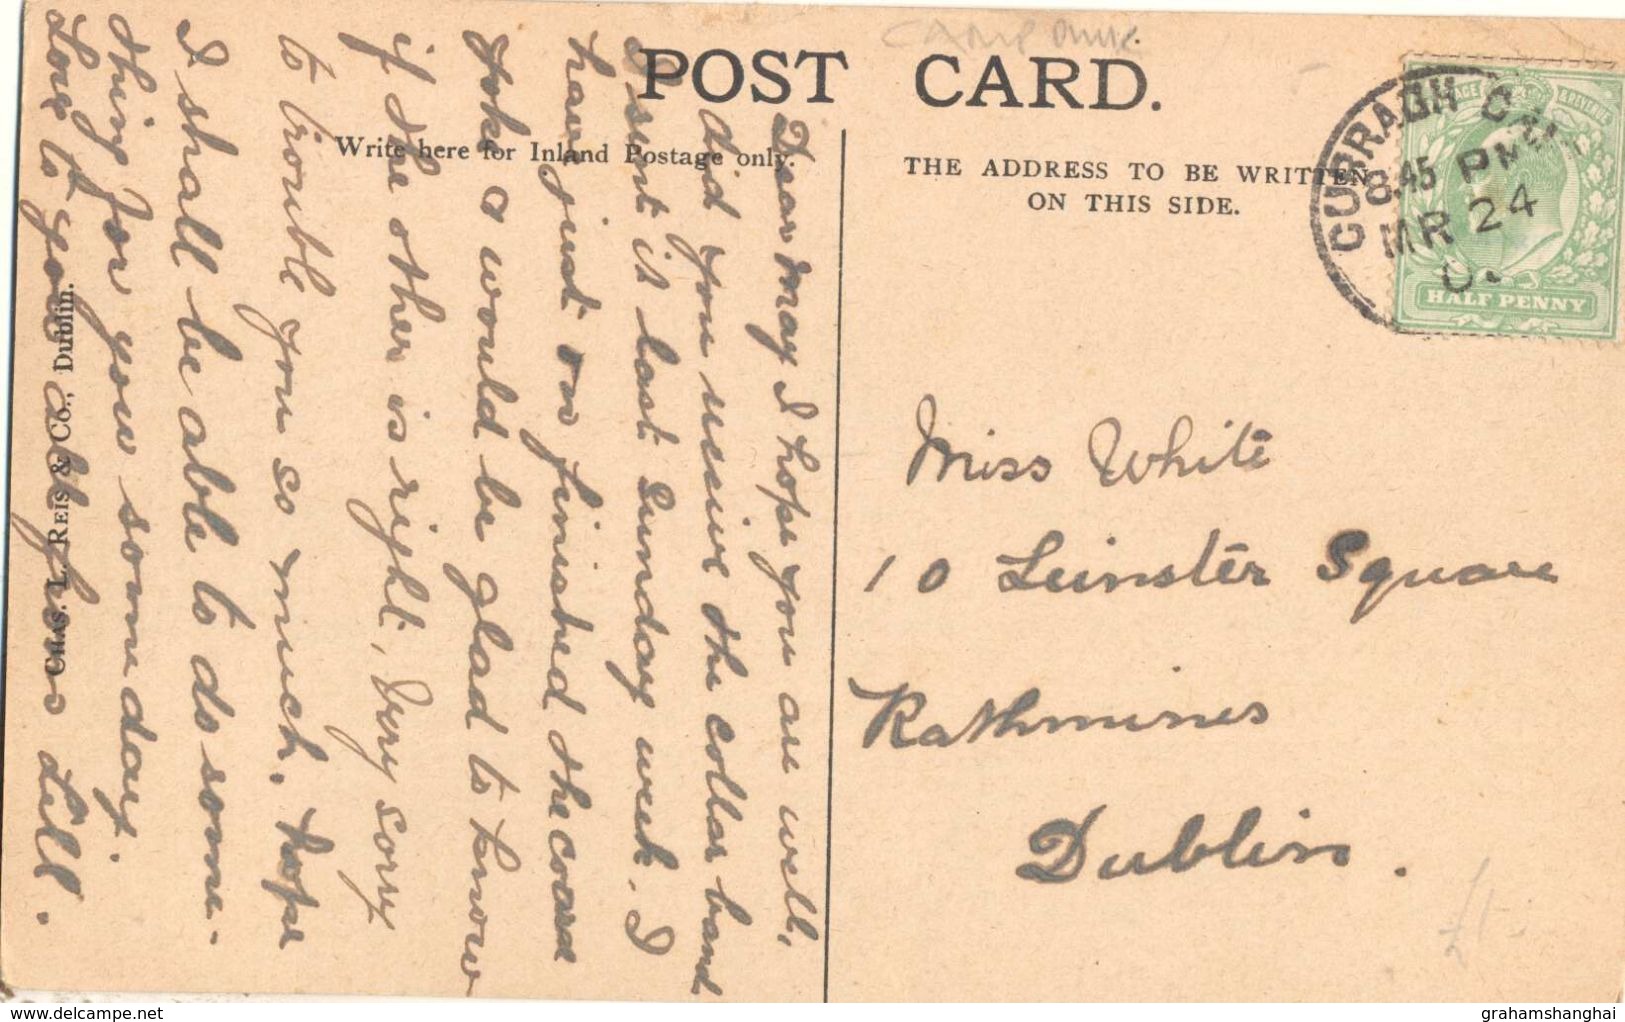 POST CARD.
Write here for Inland Postage only.
THE ADDRESS TO BE WRITTEN
ON THIS SIDE.
CURRAGH
8.45 PM
MR 24
HALF PENNY
Dear May I hope you are well,
did you receive the collar band
I sent it last Sunday week. I
have just on finished the
yoke & would be glad to know
if the other is right, Very sorry
to trouble you so much. hope
I shall be able to do some-
thing for you some day.
Love to you all from Lill.
Miss White
10 Leinster Square
Rathmines
Dublin.
CHAS. L. REIS & CO., Dublin.
£1
www.delcampe.net
grahamshanghai